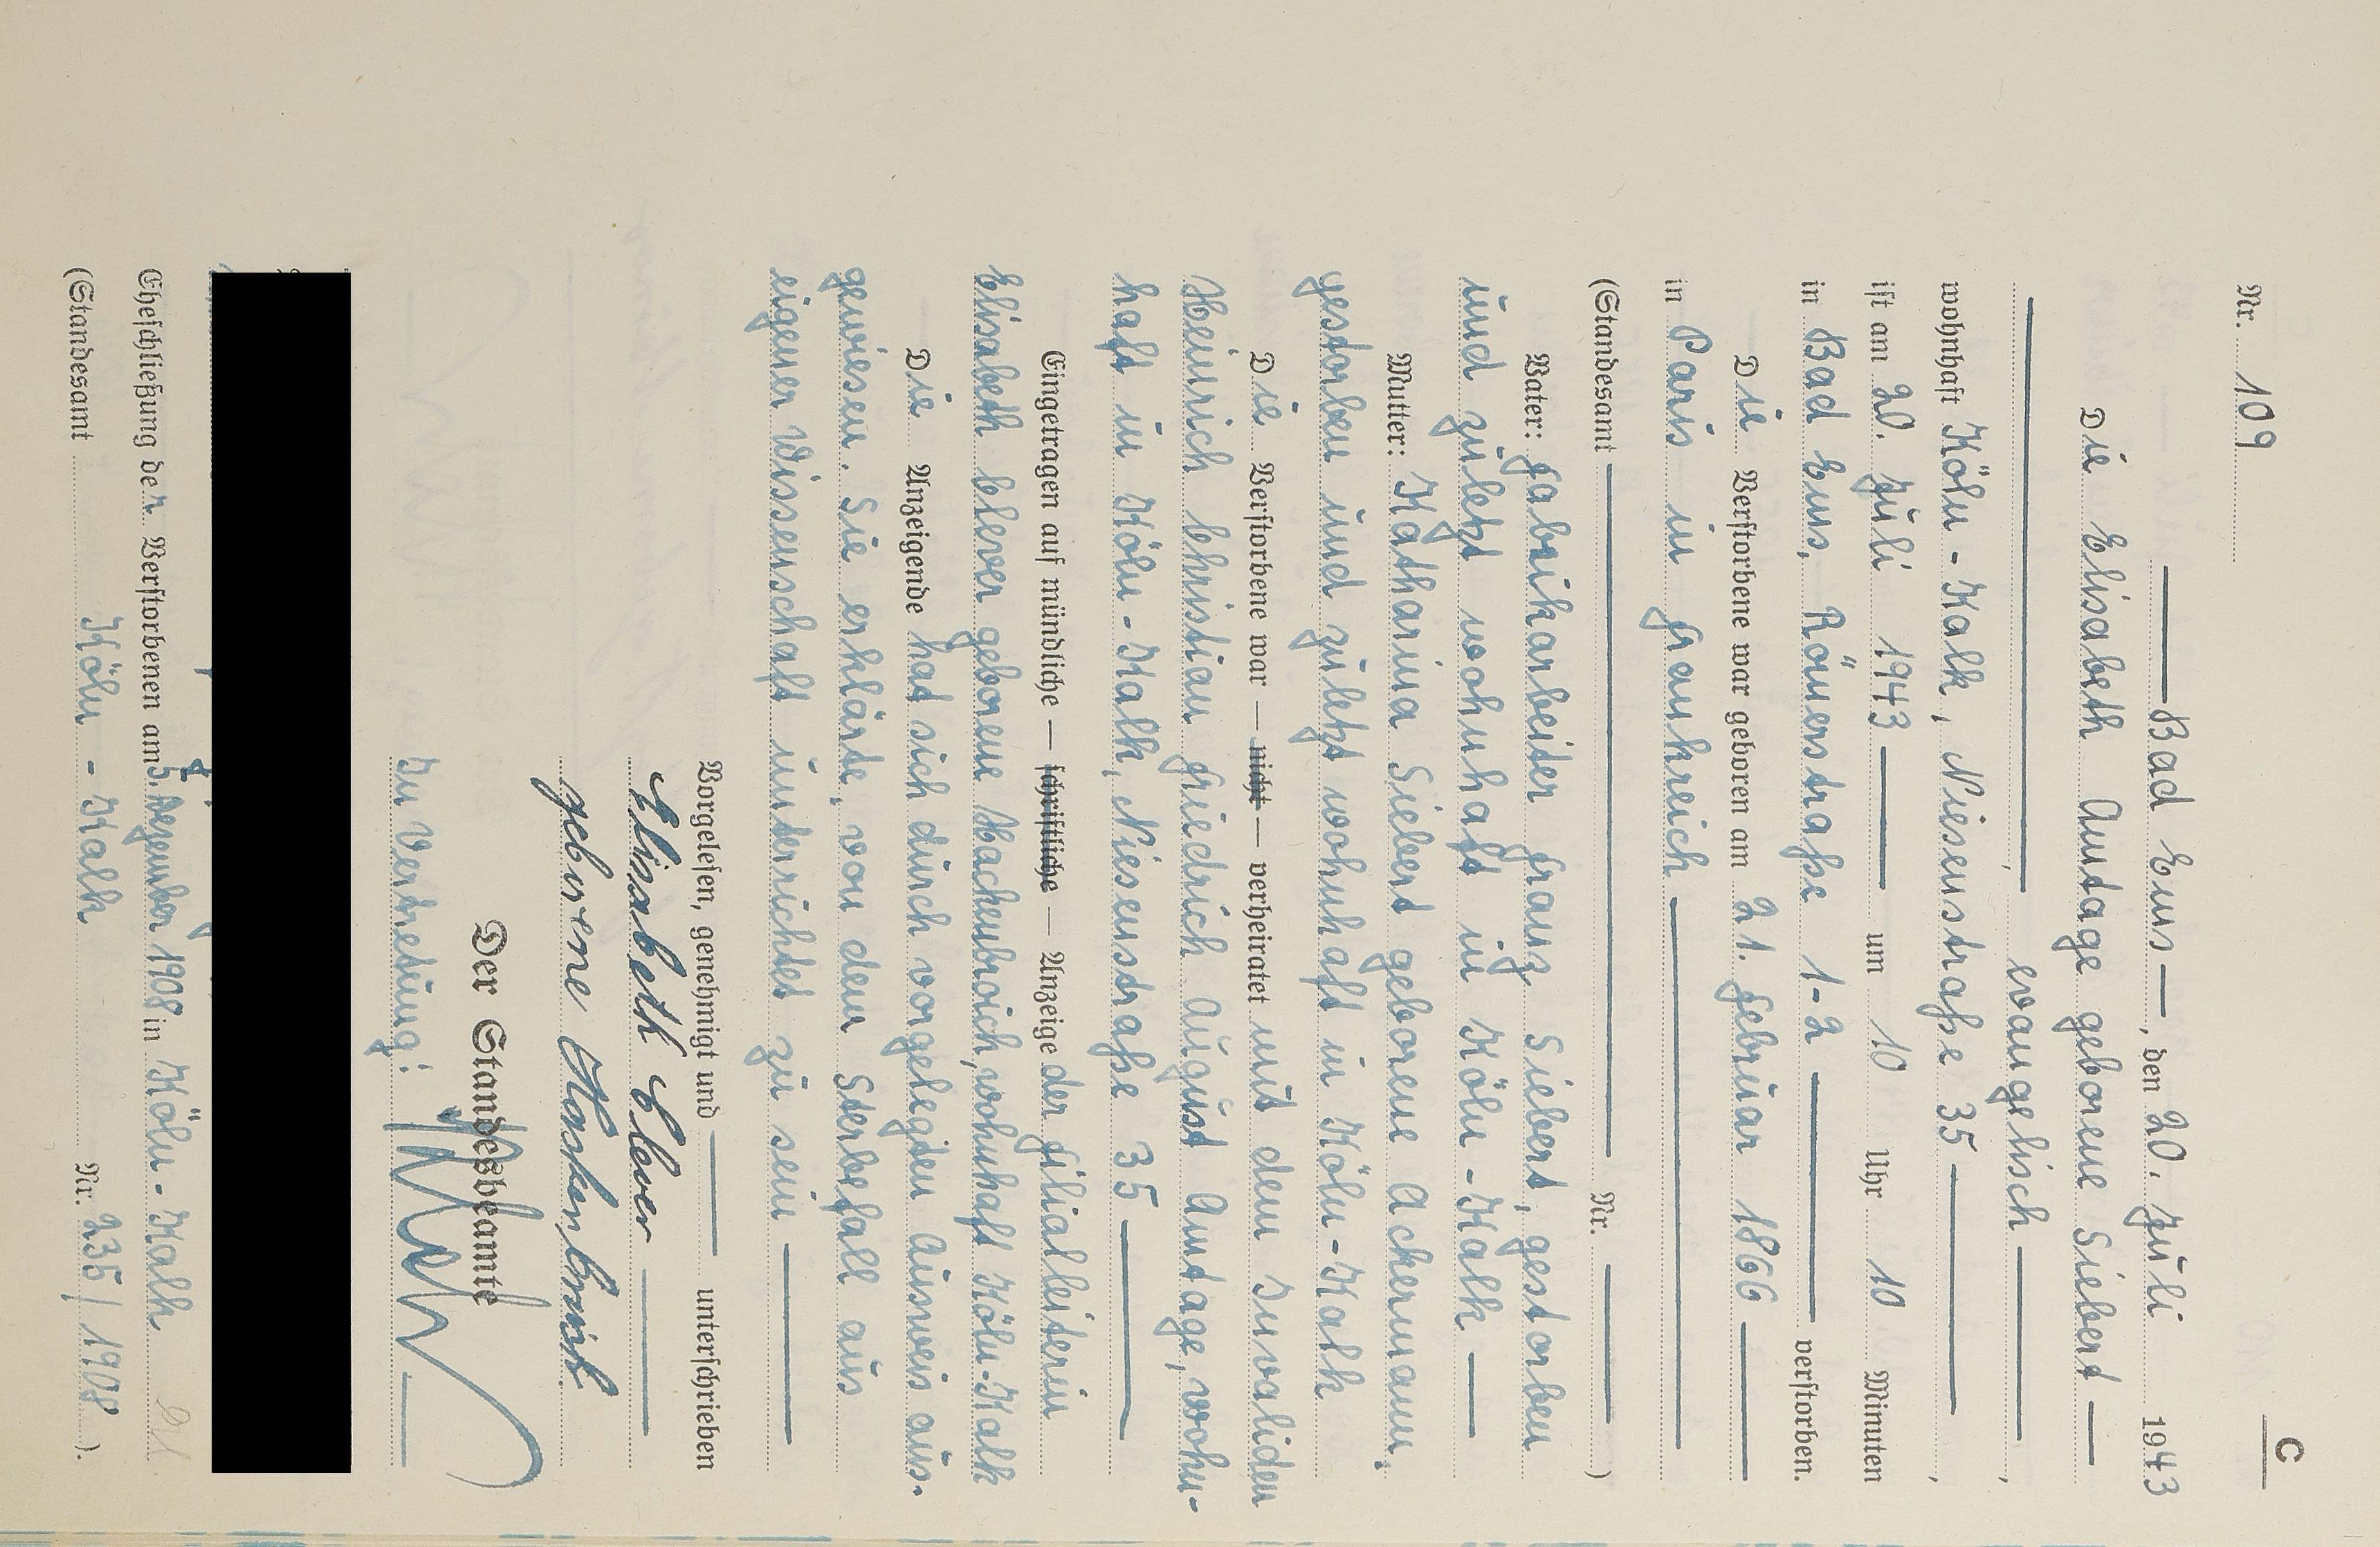 C
Nr. 109
Bad Ems, den 20. Juli 1943
Die Elisabeth Amtage geborene Siebert
, evangelisch,
wohnhaft Köln-Kalk, Niesenstraße 35,
ist am 20. Juli 1943 um 10 Uhr 10 Minuten
in Bad Ems, Römerstraße 1-2 verstorben.
Die Verstorbene war geboren am 21. Februar 1866
in Paris in Frankreich
(Standesamt Nr. )
Vater: Fabrikarbeiter Franz Siebert, gestorben
und zuletzt wohnhaft in Köln-Kalk
Mutter: Katharina Siebert geborene Ackermann,
gestorben und zuletzt wohnhaft in Köln-Kalk
Die Verstorbene war — nicht — verheiratet mit dem Invaliden
Heinrich Christian Friedrich August Amtage, wohn-
haft in Köln-Kalk, Niesenstraße 35
Eingetragen auf mündliche — schriftliche — Anzeige der Filialleiterin
Elisabeth Clever geborene Hackenbroich, wohnhaft Köln-Kalk
Die Anzeigende hat sich durch vorgelegten Ausweis aus-
gewiesen. Sie erklärte, von dem Sterbefall aus
eigener Wissenschaft unterrichtet zu sein
Vorgelesen, genehmigt und unterschrieben
Elisabeth Clever
geborene
Der Standesbeamte
In Vertretung:
Eheschließung der Verstorbenen am 5. Dezember 1908 in Köln-Kalk
(Standesamt Köln-Kalk Nr. 235/1908).